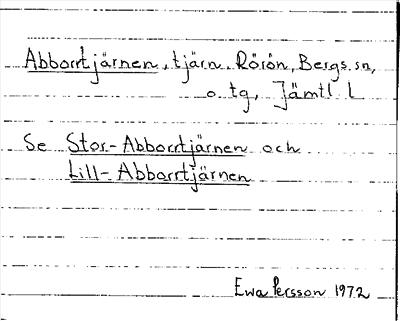 Abborrtjärnen, tjärn. Rörön, Bergs sn,
o tg, Jämtl L
Se Stor-Abborrtjärnen och
Lill-Abborrtjärnen
Ewa Persson 1972